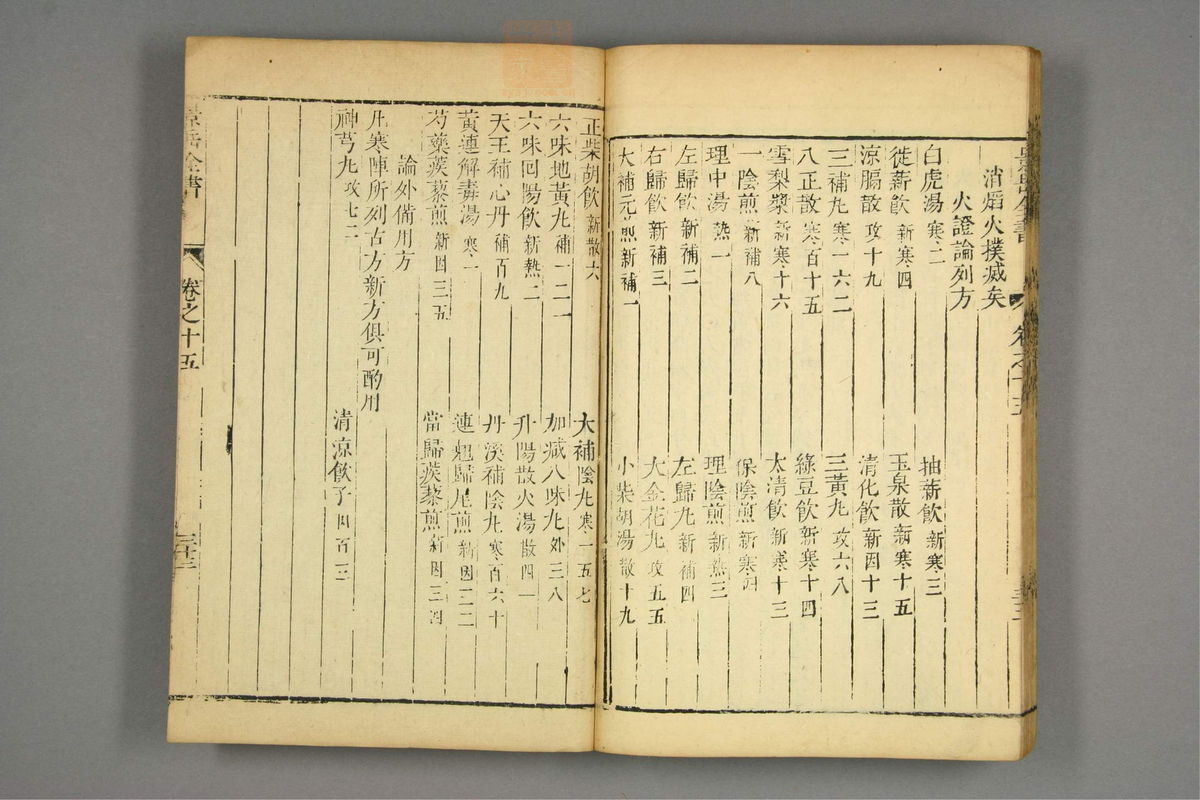 消焰火撲滅矣
火證論列方
白虎湯 寒二
抽薪飲 新寒三
徙薪飲 新寒四
玉泉散 新寒十五
涼膈散 攻十九
清化飲 新因十三
三補丸 寒一六二
三黃丸 攻六八
八正散 寒百十五
綠豆飲 新寒十四
雪梨漿 新寒十六
太清飲 新寒十三
一陰煎 新補八
保陰煎 新寒四
理中湯 熱一
理陰煎 新熱三
左歸飲 新補二
左歸丸 新補四
右歸飲 新補三
大金花丸 攻五五
大補元煎 新補一
小柴胡湯 散十九
正柴胡飲 新散六
大補陰丸 寒一五七
六味地黃丸 補一二一
加減八味丸 外三八
六味回陽飲 新熱二
升陽散火湯 散四一
天王補心丹 補百九
丹溪補陰丸 寒百六十
黃連解毒湯 寒一
連翹歸尾煎 新因二二
芍藥蒺藜煎 新因三五
當歸蒺藜煎 新因三四
論外備用方
凡寒陣所列古方新方俱可酌用
神芎丸 攻七二
清涼飲子
景岳全書
卷之十五